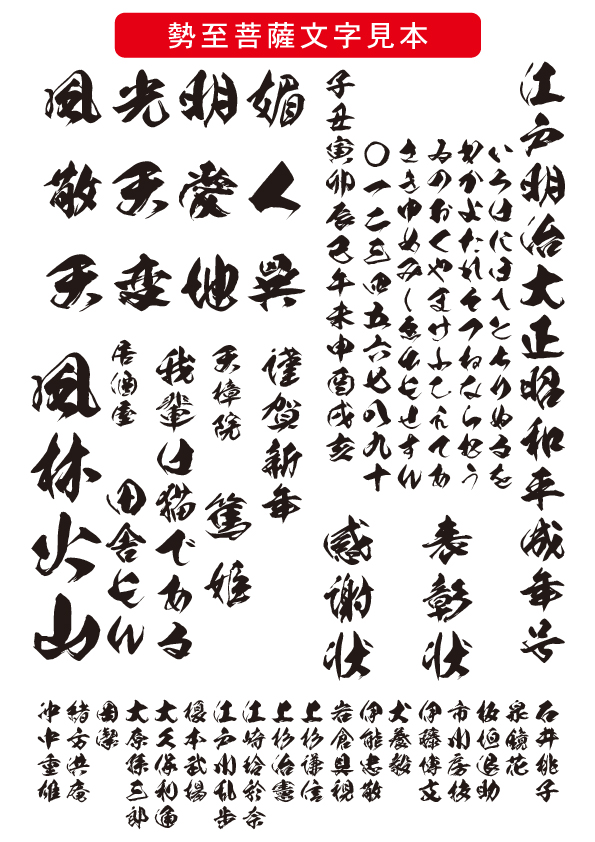 勢至菩薩文字見本
江戸明治大正昭和平成年号
いろはにほへとちりぬるを
わかよたれそつねならむう
ゐのおくやまけふこえてあ
さきゆめみしゑひもせすん
〇一二三四五六七八九十
子丑寅卯辰巳午未申酉戌亥
表彰状
感謝状
媚人異
明愛地
光天変
風敬天
謹賀新年
天璋院 篤姫
我輩は猫である
居酒屋 田舎もん
風林火山
石井桃子
泉鏡花
板垣退助
市川房枝
伊藤博文
犬養毅
伊能忠敬
岩倉具視
上杉謙信
上杉治憲
江崎玲於奈
江戸川乱歩
榎本武揚
大久保利通
大原孫三郎
緒方洪庵
沖中重雄